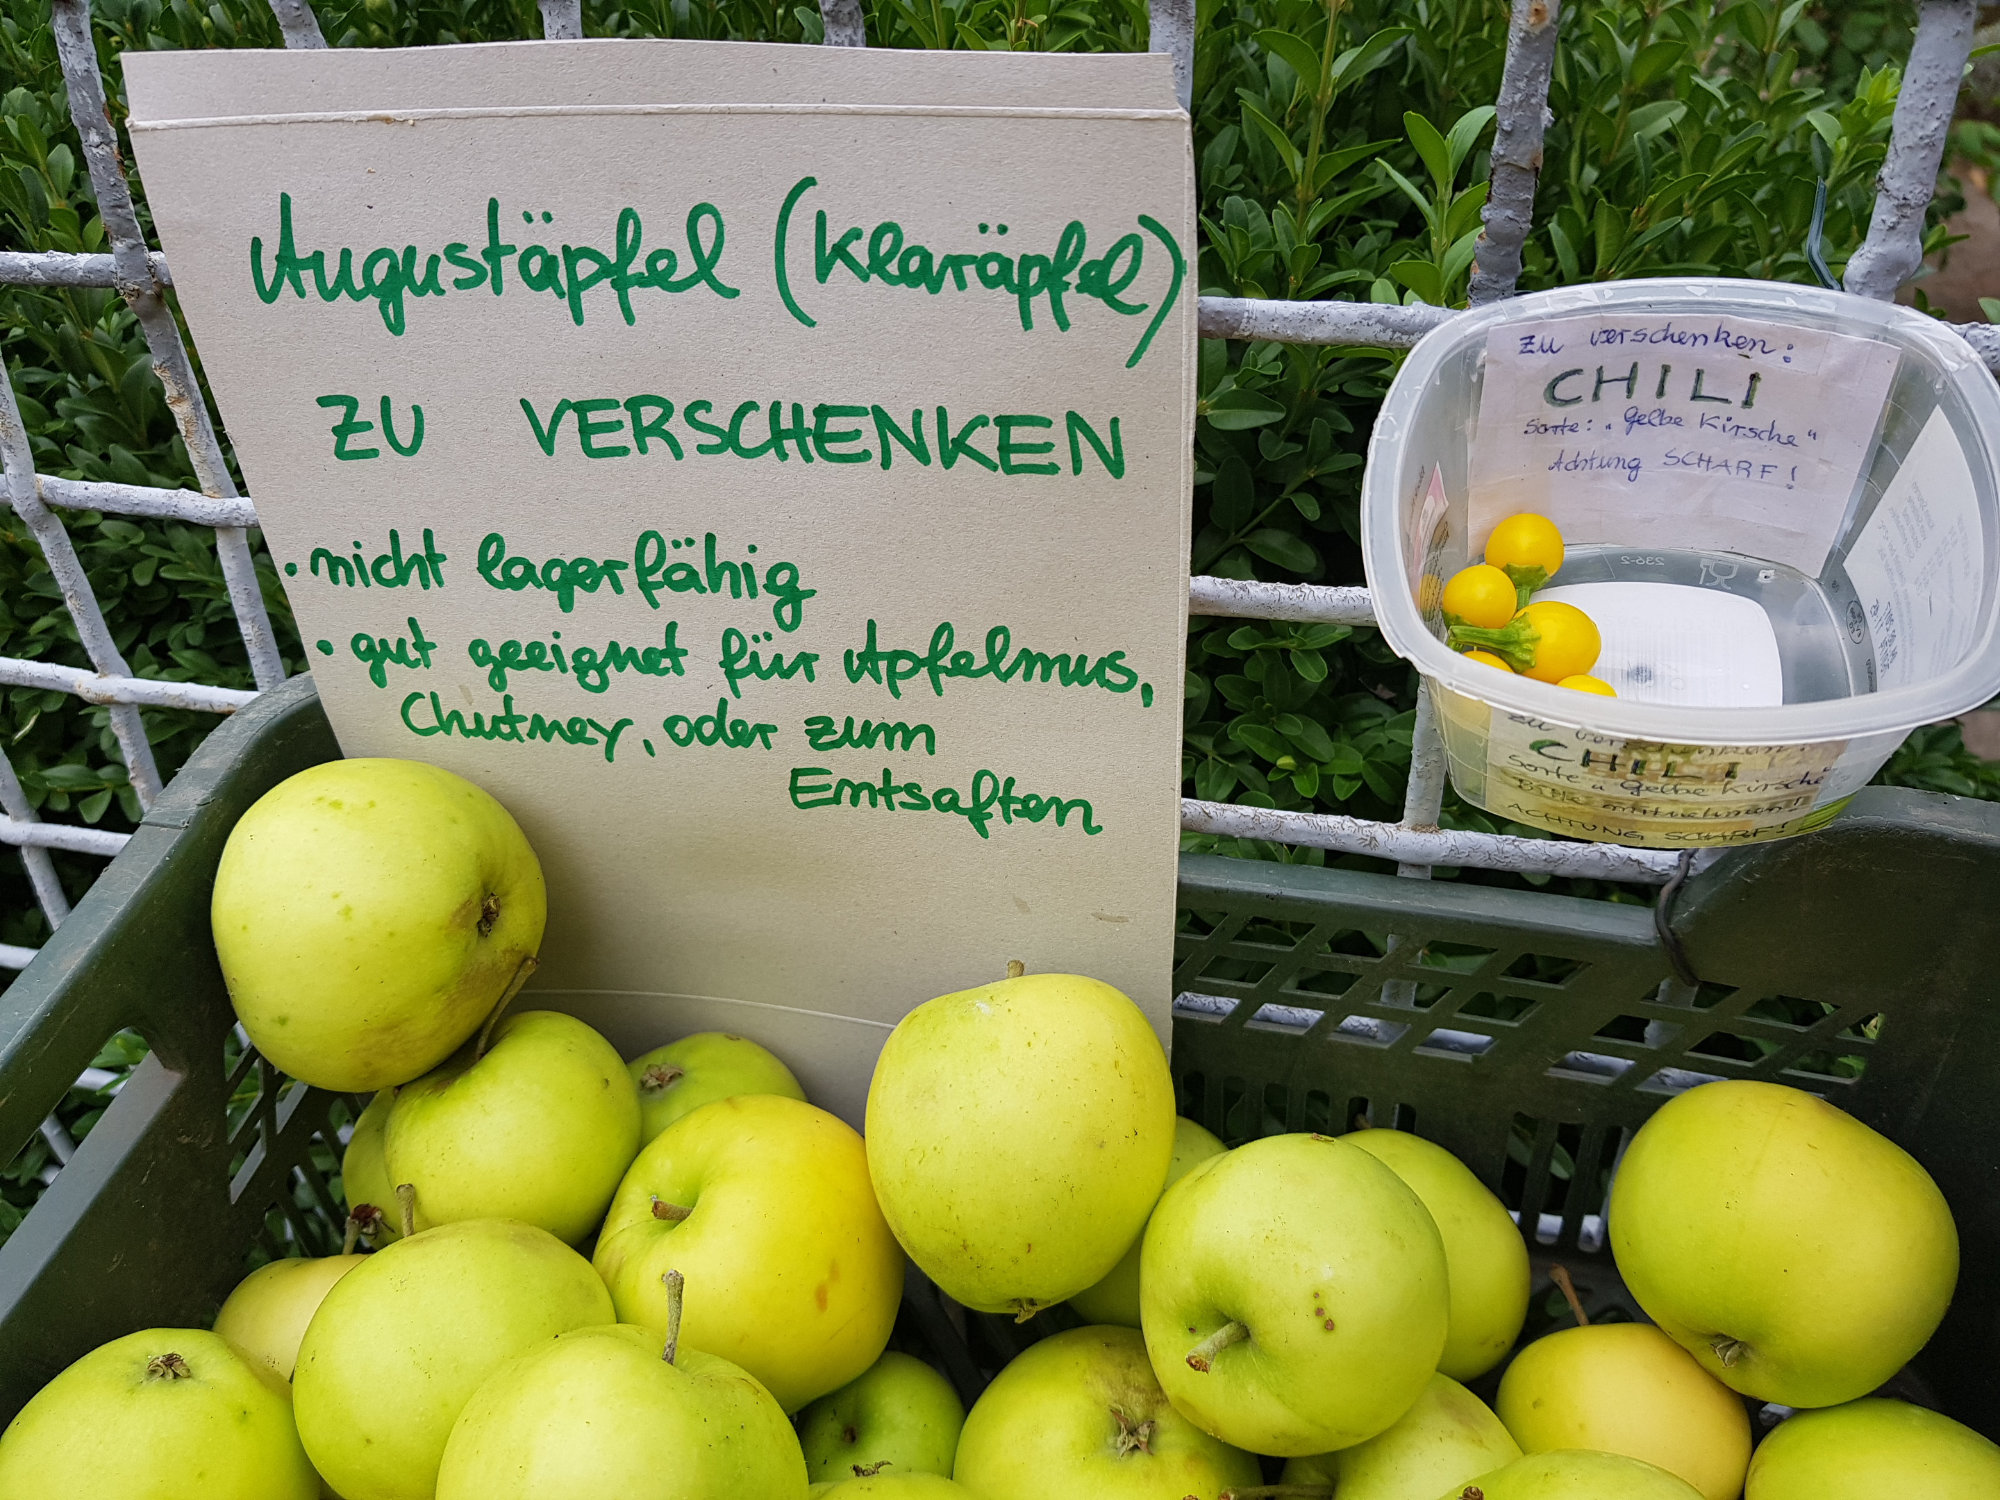 Augustäpfel (Klaräpfel)
ZU VERSCHENKEN
• nicht lagerfähig
• gut geeignet für Apfelmus,
Chutney, oder zum
Entsaften
Zu verschenken:
CHILI
Sorte: "Gelbe Kirsche"
Achtung SCHARF!
236-2
Zu verschenken:
CHILI
Sorte "Gelbe Kirsche"
Bitte mitnehmen!
ACHTUNG SCHARF!